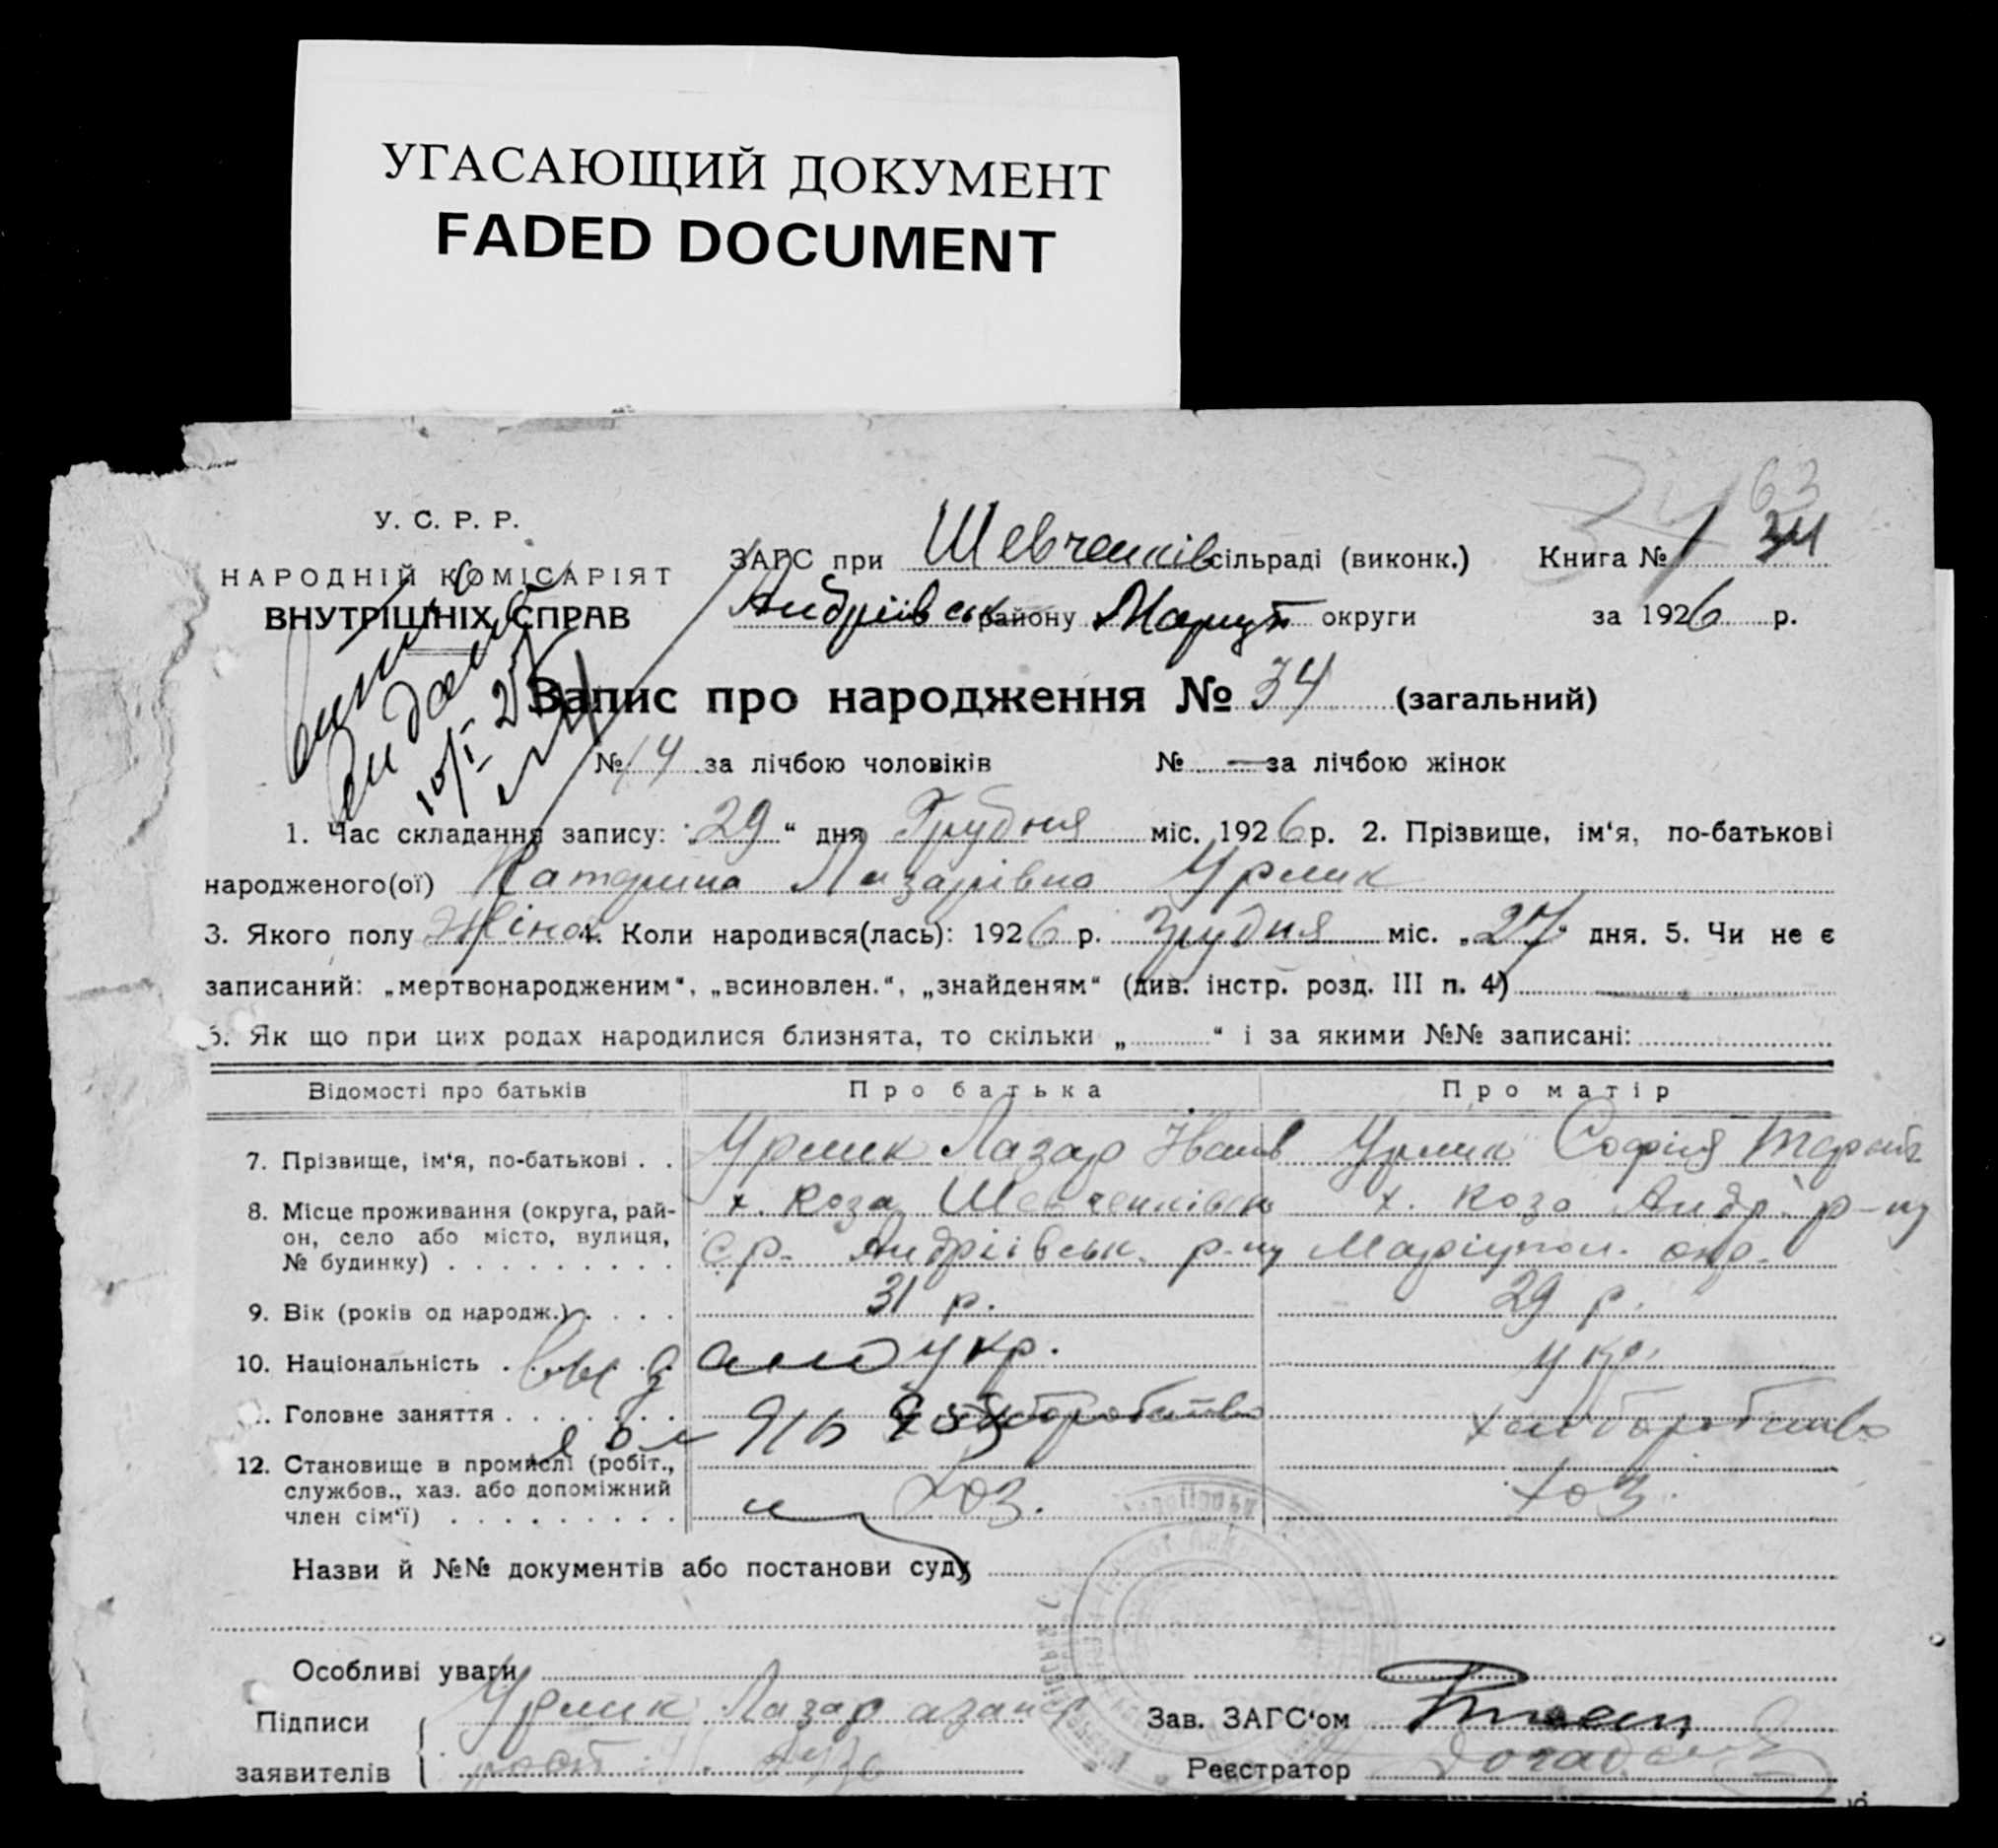 УГАСАЮЩИЙ ДОКУМЕНТ
FADED DOCUMENT
63
У. С. Р. Р.
НАРОДНІЙ КОМІСАРІЯТ
ВНУТРІШНІХ СПРАВ
ЗАГС при Шевченків сільраді (виконк.) Книга № 1 34
Андріївськ району Маріуп округи за 1926 р.
Запис про народження № 34 (загальний)
№ 14 за лічбою чоловіків № — за лічбою жінок
1. Час складання запису: „29“ дня Грудня міс. 1926 р. 2. Прізвище, ім‘я, по-батькові
народженого(ої) Катерина Лазарівна Урлик
3. Якого полу Жіноч 4. Коли народився(лась): 1926 р. Грудня міс. „27“ дня. 5. Чи не є
записаний: „мертвонародженим“, „всиновлен.“, „знайденям“ (див. інстр. розд. III п. 4)
6. Як що при цих родах народилися близнята, то скільки „ “ і за якими №№ записані:
Відомості про батьків Про батька Про матір
7. Прізвище, ім‘я, по-батькові . . Урлик Лазар Іванів Урлик Софія
8. Місце проживання (округа, рай- х. Коза Шевченківськ х. Коза Андр. р-ну
он, село або місто, вулиця, с.р. Андріївськ. р-ну Маріупол. окр.
№ будинку) . . . . . . . . .
9. Вік (років од народж.) . . . . 31 р. 29 р.
10. Національність . . . . . укр. укр.
Головне заняття . . . . . . . хліборобство хліборобство
12. Становище в промислі (робіт.,
службов., хаз. або допоміжний
член сім‘ї) . . . . . . . . . хоз. хоз.
Назви й №№ документів або постанови суду
Особливі уваги
Підписи Урлик Лазар
заявителів
Зав. ЗАГС‘ом
Реєстратор